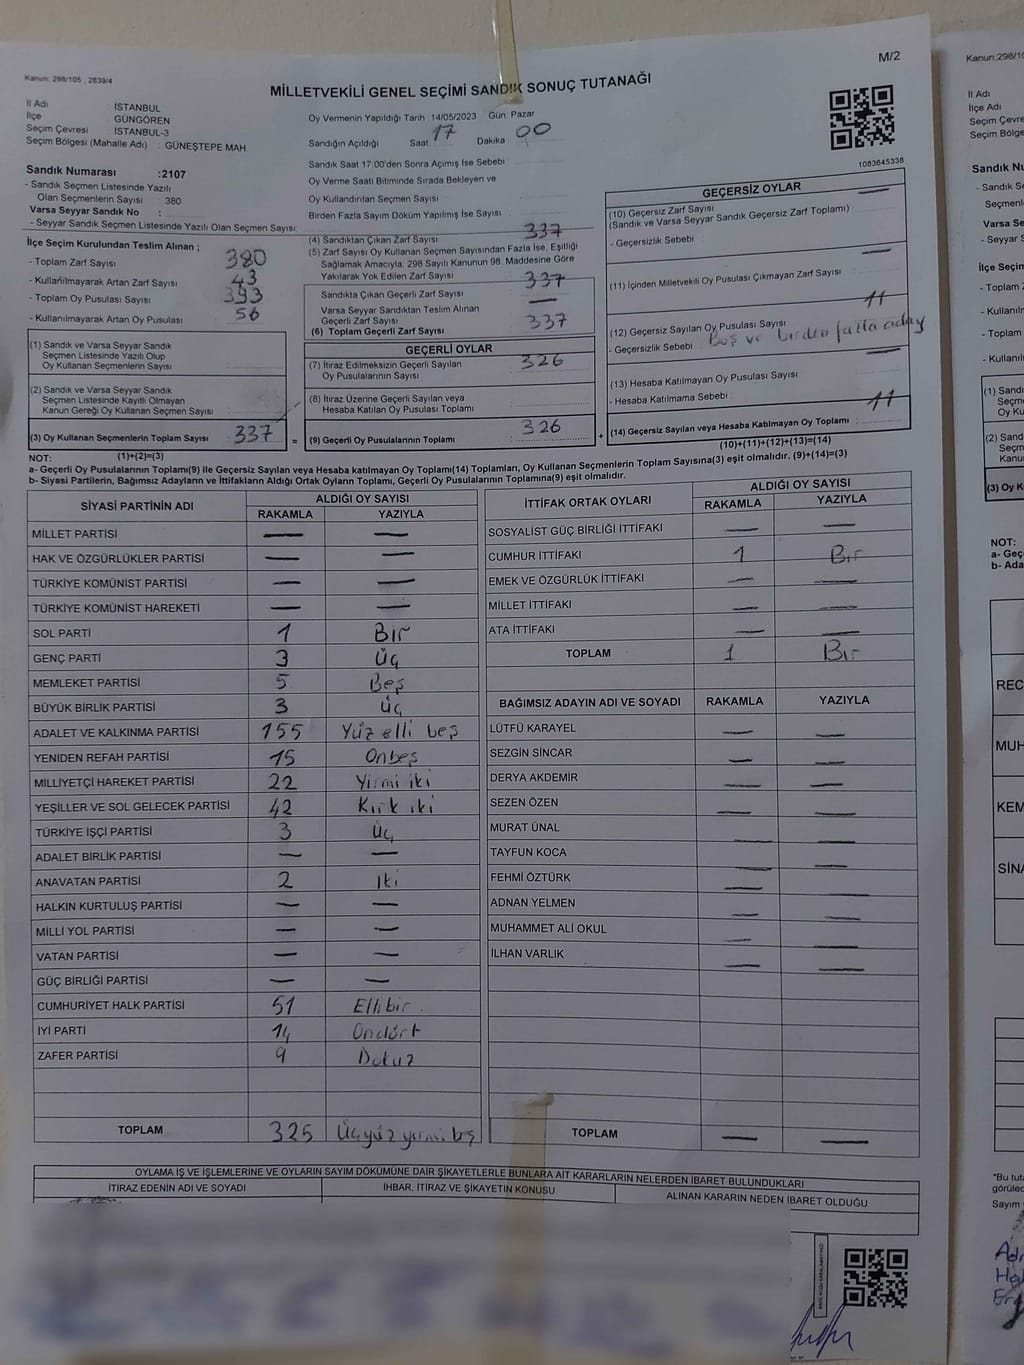 M/2
Kanun: 298/105 , 2839/4
MİLLETVEKİLİ GENEL SEÇİMİ SANDIK SONUÇ TUTANAĞI
İl Adı : İSTANBUL
İlçe GÜNGÖREN
Seçim Çevresi İSTANBUL-3
Seçim Bölgesi (Mahalle Adı) : GÜNEŞTEPE MAH
Oy Vermenin Yapıldığı Tarih 14/05/2023 Gün Pazar
Sandığın Açıldığı Saat 17 Dakika 00
Sandık Saat 17:00'den Sonra Açımış İse Sebebi
Oy Verme Saati Bitiminde Sırada Bekleyen ve
Oy Kullandırılan Seçmen Sayısı
Birden Fazla Sayım Döküm Yapılmış İse Sayısı
1083645338
Sandık Numarası :2107
- Sandık Seçmen Listesinde Yazılı
Olan Seçmenlerin Sayısı : 380
Varsa Seyyar Sandık No :
- Seyyar Sandık Seçmen Listesinde Yazılı Olan Seçmen Sayısı
İlçe Seçim Kurulundan Teslim Alınan ;
- Toplam Zarf Sayısı 380
- Kullanılmayarak Artan Zarf Sayısı 43
- Toplam Oy Pusulası Sayısı 393
- Kullanılmayarak Artan Oy Pusulası 56
(1) Sandık ve Varsa Seyyar Sandık
Seçmen Listesinde Yazılı Olup
Oy Kullanan Seçmenlerin Sayısı
(2) Sandık ve Varsa Seyyar Sandık
Seçmen Listesinde Kayıtlı Olmayan
Kanun Gereği Oy Kullanan Seçmen Sayısı
(3) Oy Kullanan Seçmenlerin Toplam Sayısı 337 =
(1)+(2)=(3)
(4) Sandıktan Çıkan Zarf Sayısı 337
(5) Zarf Sayısı Oy Kullanan Seçmen Sayısından Fazla İse, Eşitliği
Sağlamak Amacıyla, 298 Sayılı Kanunun 98. Maddesine Göre
Yakılarak Yok Edilen Zarf Sayısı
Sandıkta Çıkan Geçerli Zarf Sayısı 337
Varsa Seyyar Sandıktan Teslim Alınan
Geçerli Zarf Sayısı —
(6) Toplam Geçerli Zarf Sayısı 337
GEÇERLİ OYLAR
(7) İtiraz Edilmeksizin Geçerli Sayılan
Oy Pusulalarının Sayısı 326
(8) İtiraz Üzerine Geçerli Sayılan veya
Hesaba Katılan Oy Pusulası Toplamı
(9) Geçerli Oy Pusulalarının Toplamı 326 +
GEÇERSİZ OYLAR
(10) Geçersiz Zarf Sayısı —
(Sandık ve Varsa Seyyar Sandık Geçersiz Zarf Toplamı)
- Geçersizlik Sebebi
(11) İçinden Milletvekili Oy Pusulası Çıkmayan Zarf Sayısı —
(12) Geçersiz Sayılan Oy Pusulası Sayısı 11
- Geçersizlik Sebebi Boş ve birden fazla aday
(13) Hesaba Katılmayan Oy Pusulası Sayısı —
- Hesaba Katılmama Sebebi :
(14) Geçersiz Sayılan veya Hesaba Katılmayan Oy Toplamı 11
(10)+(11)+(12)+(13)=(14)
NOT:
a- Geçerli Oy Pusulalarının Toplamı(9) ile Geçersiz Sayılan veya Hesaba katılmayan Oy Toplamı(14) Toplamları, Oy Kullanan Seçmenlerin Toplam Sayısına(3) eşit olmalıdır. (9)+(14)=(3)
b- Siyasi Partilerin, Bağımsız Adayların ve İttifakların Aldığı Ortak Oyların Toplamı, Geçerli Oy Pusulalarının Toplamına(9) eşit olmalıdır.
SİYASİ PARTİNİN ADI ALDIĞI OY SAYISI
RAKAMLA YAZIYLA
MİLLET PARTİSİ — —
HAK VE ÖZGÜRLÜKLER PARTİSİ — —
TÜRKİYE KOMÜNİST PARTİSİ — —
TÜRKİYE KOMÜNİST HAREKETİ — —
SOL PARTİ 1 Bir
GENÇ PARTİ 3 Üç
MEMLEKET PARTİSİ 5 Beş
BÜYÜK BİRLİK PARTİSİ 3 Üç
ADALET VE KALKINMA PARTİSİ 155 Yüz elli beş
YENİDEN REFAH PARTİSİ 15 Onbeş
MİLLİYETÇİ HAREKET PARTİSİ 22 Yirmi iki
YEŞİLLER VE SOL GELECEK PARTİSİ 42 Kırk iki
TÜRKİYE İŞÇİ PARTİSİ 3 Üç
ADALET BİRLİK PARTİSİ — —
ANAVATAN PARTİSİ 2 İki
HALKIN KURTULUŞ PARTİSİ — —
MİLLİ YOL PARTİSİ — —
VATAN PARTİSİ — —
GÜÇ BİRLİĞİ PARTİSİ — —
CUMHURİYET HALK PARTİSİ 51 Ellibir
İYİ PARTİ 14 Ondört
ZAFER PARTİSİ 9 Dokuz
TOPLAM 325 Üçyüz yirmi beş
İTTİFAK ORTAK OYLARI ALDIĞI OY SAYISI
RAKAMLA YAZIYLA
SOSYALİST GÜÇ BİRLİĞİ İTTİFAKI — —
CUMHUR İTTİFAKI 1 Bir
EMEK VE ÖZGÜRLÜK İTTİFAKI — —
MİLLET İTTİFAKI — —
ATA İTTİFAKI — —
TOPLAM 1 Bir
BAĞIMSIZ ADAYIN ADI VE SOYADI RAKAMLA YAZIYLA
LÜTFÜ KARAYEL — —
SEZGİN SİNCAR — —
DERYA AKDEMİR — —
SEZEN ÖZEN — —
MURAT ÜNAL — —
TAYFUN KOCA — —
FEHMİ ÖZTÜRK — —
ADNAN YELMEN — —
MUHAMMET ALİ OKUL — —
İLHAN VARLIK — —
TOPLAM — —
OYLAMA İŞ VE İŞLEMLERİNE VE OYLARIN SAYIM DÖKÜMÜNE DAİR ŞİKAYETLERLE BUNLARA AİT KARARLARIN NELERDEN İBARET BULUNDUKLARI
İTİRAZ EDENİN ADI VE SOYADI İHBAR, İTİRAZ VE ŞİKAYETİN KONUSU ALINAN KARARIN NEDEN İBARET OLDUĞU
Kanun:298/10
İl Adı
İlçe Adı
Seçim Çevre
Seçim Bölg
Sandık Nu
- Sandık Se
Seçmenl
Varsa Sey
- Seyyar S
İlçe Seçim
- Toplam
- Kullanıl
- Toplam
- Kullanıl
(1) Sandı
Seçm
Oy Ku
(2) Sand
Seçm
Kanu
(3) Oy K
NOT:
a- Geç
b- Ada
REC
MUH
KEM
SİNA
*Bu tuta
görülec
Sayım